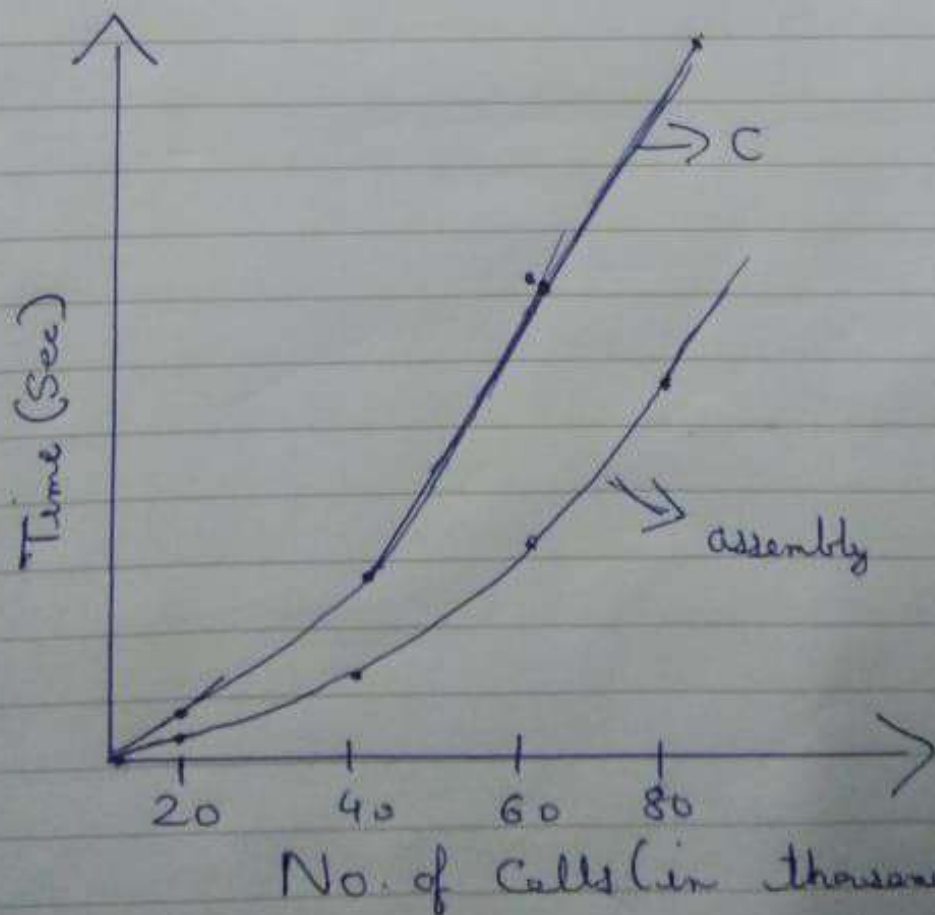 C
Time (Sec)
assembly
20 40 60 80
No. of Calls (in thousan